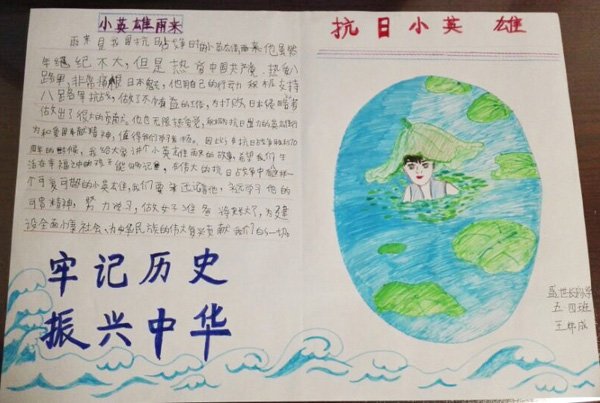 小英雄雨来
雨来是我国抗日战争时的小英雄雨来,他虽然
年纪不大,但是热爱中国共产党,热爱八
路军,非常痛恨日本鬼,他用自己的行动积极支持
八路军抗战,做了不少有益的工作,为打败日本侵略者
做出了很大的贡献,他也无限热爱党,
为和宝贵献精神,值得我们学习
周年的时候,我给大家讲个小英雄雨来的故事,希望我们生
活在幸福之中的孩子能够记,在伟大的抗日战争中
一个可爱可敬的小英雄,我们要来远请他,学习他的
可贵精神,努力学习,做好准备,将来长大了,为建
设全面小康社会、为中华民族的伟大复兴贡献我们的一切
牢记历史
振兴中华
抗日小英雄
五四班